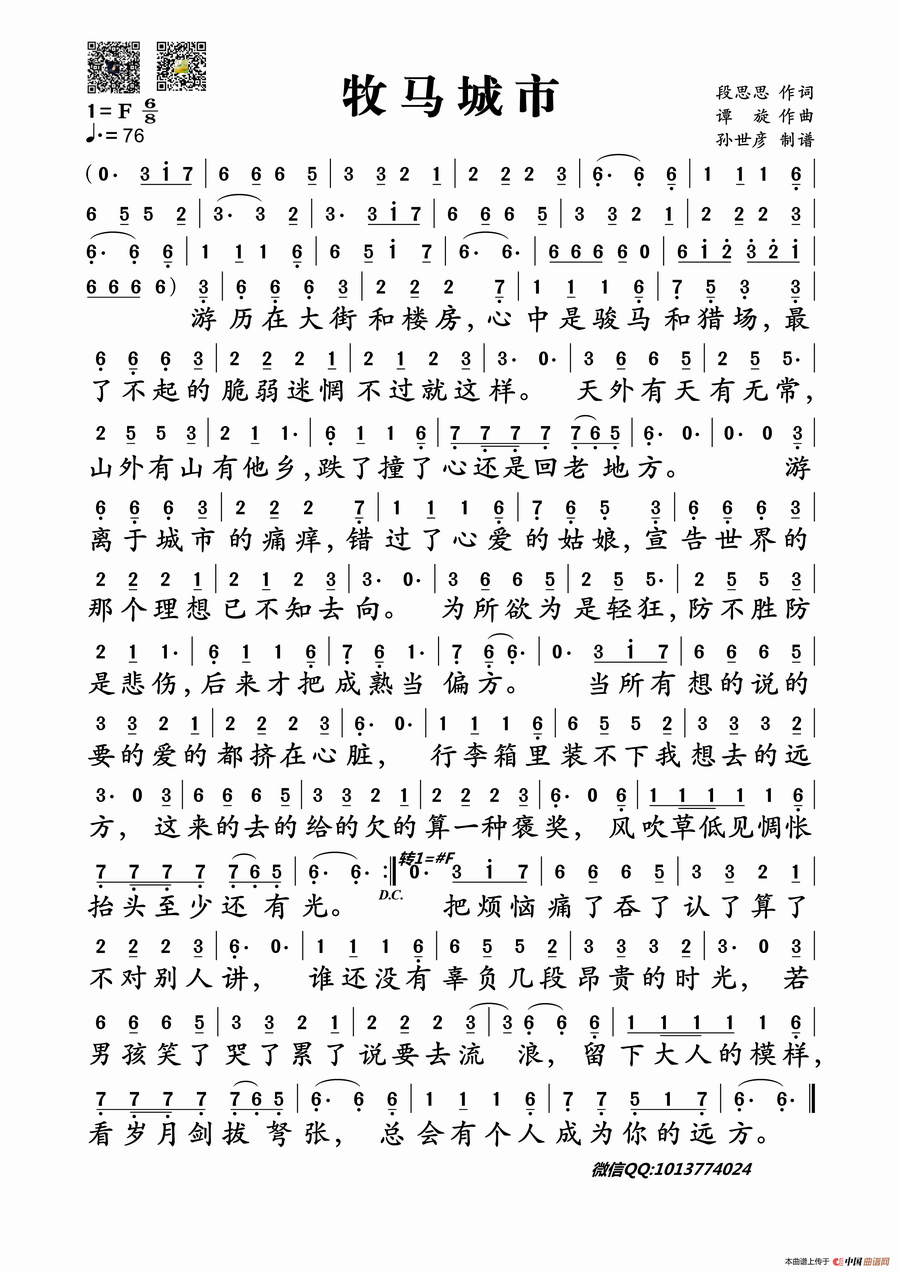 牧马城市
1=F 6/8
♩.=76
段思思 作词
谭 旋 作曲
孙世彦 制谱
(0· 3 i 7 | 6 6 6 5 | 3 3 2 1 | 2 2 2 3 | 6· 6 6 | 1 1 1 6 |
6 5 5 2 | 3· 3 2 | 3· 3 i 7 | 6 6 6 5 | 3 3 2 1 | 2 2 2 3 |
6· 6 6 | 1 1 1 6 | 6 5 i 7 | 6· 6· | 6 6 6 6 0 | 6 i 2 3 2 i |
6 6 6 6 6) 3 | 6 6 6 3 | 2 2 2 7 | 1 1 1 6 | 7 5 3 3 |
游历在大街和楼房,心中是骏马和猎场,最
6 6 6 3 | 2 2 2 1 | 2 1 2 3 | 3· 0· | 3 6 6 5 | 2 5 5· |
了不起的脆弱迷惘不过就这样。 天外有天有无常,
2 5 5 3 | 2 1 1· | 6 1 1 6 | 7 7 7 7 7 6 5 | 6· 0· | 0· 0 3 |
山外有山有他乡,跌了撞了心还是回老 地方。 游
6 6 6 3 | 2 2 2 7 | 1 1 1 6 | 7 6 5 3 | 6 6 6 3 |
离于城市的痛痒,错过了心爱的姑娘,宣告世界的
2 2 2 1 | 2 1 2 3 | 3· 0· | 3 6 6 5 | 2 5 5· | 2 5 5 3 |
那个理想已不知去向。 为所欲为是轻狂,防不胜防
2 1 1· | 6 1 1 6 | 7 6 1· | 7 6 6· | 0· 3 i 7 | 6 6 6 5 |
是悲伤,后来才把成熟当 偏方。 当所有想的说的
3 3 2 1 | 2 2 2 3 | 6· 0· | 1 1 1 6 | 6 5 5 2 | 3 3 3 2 |
要的爱的都挤在心脏, 行李箱里装不下我想去的远
3· 0 3 | 6 6 6 5 | 3 3 2 1 | 2 2 2 3 | 6· 0 6 | 1 1 1 1 1 6 |
方, 这来的去的给的欠的算一种褒奖, 风吹草低见惆怅
7 7 7 7 7 6 5 | 6· 6· :‖ 0· 3 i 7 | 6 6 6 5 | 3 3 2 1 |
转1=#F
D.C.
抬头至少还 有光。 把烦恼痛了吞了认了算了
2 2 2 3 | 6· 0· | 1 1 1 6 | 6 5 5 2 | 3 3 3 2 | 3· 0 3 |
不对别人讲, 谁还没有辜负几段昂贵的时光, 若
6 6 6 5 | 3 3 2 1 | 2 2 2 3 | 3 6· 6 6 | 1 1 1 1 1 6 |
男孩笑了哭了累了说要去流 浪, 留下大人的模样,
7 7 7 7 7 6 5 | 6· 6 6 | 1 1 1 6 | 7 7 5 1 7 | 6· 6· ‖
看岁月剑拔 弩张, 总会有个人成为你的远方。
微信QQ:1013774024
本曲谱上传于 中国曲谱网